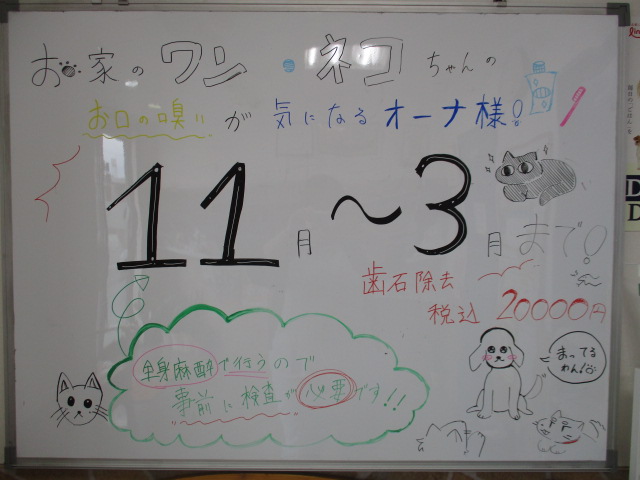 お家のワン・ネコちゃんの
お口の嗅いが気になるオーナ様!
11月〜3月まで!
歯石除去
税込 20000円
全身麻酔で行うので
事前に検査が必要です!!
まってる
わん!